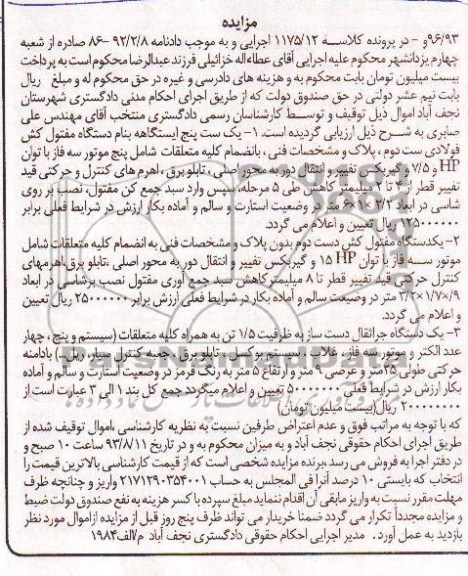 مزایده
۹۶/۹۳و - در پرونده کلاسه ۱۱۷۵/۱۲ اجرایی و به موجب دادنامه ۹۲/۲/۸ -۸۶ صادره از شعبه
چهارم یزدانشهر محکوم علیه اجرایی آقای عطاءاله خزائیلی فرزند عبدالرضا محکوم است به پرداخت
بیست میلیون تومان بابت محکوم به و هزینه های دادرسی و غیره در حق محکوم له و مبلغ ریال
بابت نیم عشر دولتی در حق صندوق دولت که از طریق اجرای احکام مدنی دادگستری شهرستان
نجف آباد اموال ذیل توقیف و توسط کارشناسان رسمی دادگستری منتخب آقای مهندس علی
صابری به شرح ذیل ارزیابی گردیده است. ۱- یک ست پنج ایستگاهه بنام دستگاه مفتول کش
فولادی ست دوم ، پلاک و مشخصات فنی ، بانضمام کلیه متعلقات شامل پنج موتور سه فاز با توان
HP و ۷/۵ و گیربکس تغییر و انتقال دور به محور اصلی ، تابلو برق ، اهرم های کنترل و حرکتی قید
تغییر قطر از ۴ تا ۲ میلیمتر کاهش طی ۵ مرحله، سپس وارد سبد جمع کن مفتول، نصب بر روی
شاسی در ابعاد ۲/۲×۱×۶ متر در وضعیت استارت و سالم و آماده بکار ارزش در شرایط فعلی برابر
۱۲۵۰۰۰۰۰۰ ریال تعیین و اعلام می گردد.
۲- یکدستگاه مفتول کش دست دوم بدون پلاک و مشخصات فنی به انضمام کلیه متعلقات شامل
موتور سه فاز با توان HP ۱۵ و گیربکس تغییر و انتقال دور به محور اصلی ،تابلو برق،اهرمهای
کنترل حرکتی قید تغییر قطر تا ۸ میلیمتر کاهش سبد جمع آوری مفتول نصب برشاسی در ابعاد
۳/۲×۱/۷×۰/۹ متر در وضیعت سالم و آماده بکار در شرایط فعلی ارزش برابر ۲۵۰۰۰۰۰۰ ریال تعیین
و اعلام می گردد.
۳- یک دستگاه جراثقال دست ساز به ظرفیت ۱/۵ تن به همراه کلیه متعلقات (سیستم و پنج ، چهار
عدد الکتر و موتور سه فاز ، غلاب ، سیستم بوکسل ، تابلو برق ، جعبه کنترل سیار، ریل ..) بادامنه
حرکتی طولی ۳۵متر و عرضی ۹ متر و ارتفاع ۵ متر به رنگ قرمز در وضعیت استارت و سالم و آماده
بکار ارزش در شرایط فعلی ۵۰۰۰۰۰۰۰ ریال تعیین و اعلام میگردد جمع کل بند ۱ الی ۳ عبارت است از
۲۰۰۰۰۰۰۰۰ ریال(بیست میلیون تومان)
که با توجه به مراتب فوق و عدم اعتراض طرفین نسبت به نظریه کارشناسی ،اموال توقیف شده از
طریق اجرای احکام حقوقی نجف آباد و به میزان محکوم به و در تاریخ ۹۳/۸/۱۱ ساعت ۱۰ صبح و
در دفتر اجرا به فروش می رسد،برنده مزایده شخصی است که از قیمت کارشناسی بالاترین قیمت را
انتخاب که بایستی ۱۰ درصد آنرا فی المجلس به حساب ۲۱۷۱۲۹۰۳۵۴۰۰۱ واریز و چنانچه ظرف
مهلت مقرر نسبت به واریز مابقی آن اقدام ننماید مبلغ سپرده با کسر هزینه به نفع صندوق دولت ضبط
و مزایده مجددأ تکرار می گردد ضمنا خریدار می تواند ظرف پنج روز قبل از مزایده ازاموال مورد نظر
بازدید به عمل آورد. مدیر اجرایی احکام حقوقی دادگستری نجف آباد م/الف۱۹۸۴